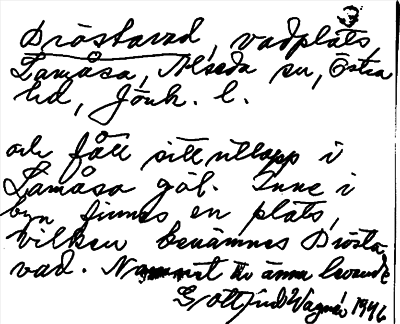 Dröstavad, vadplats,
Lamåsa, Alseda sn, Östra
hd, Jönk. l.
och fått sitt utlopp i
Lamåsa göl. Inne i
byn finnes en plats,
vilken benämnes Drösta-
vad. Namnet är ännu levande
Gottfrid Wagnér 1946